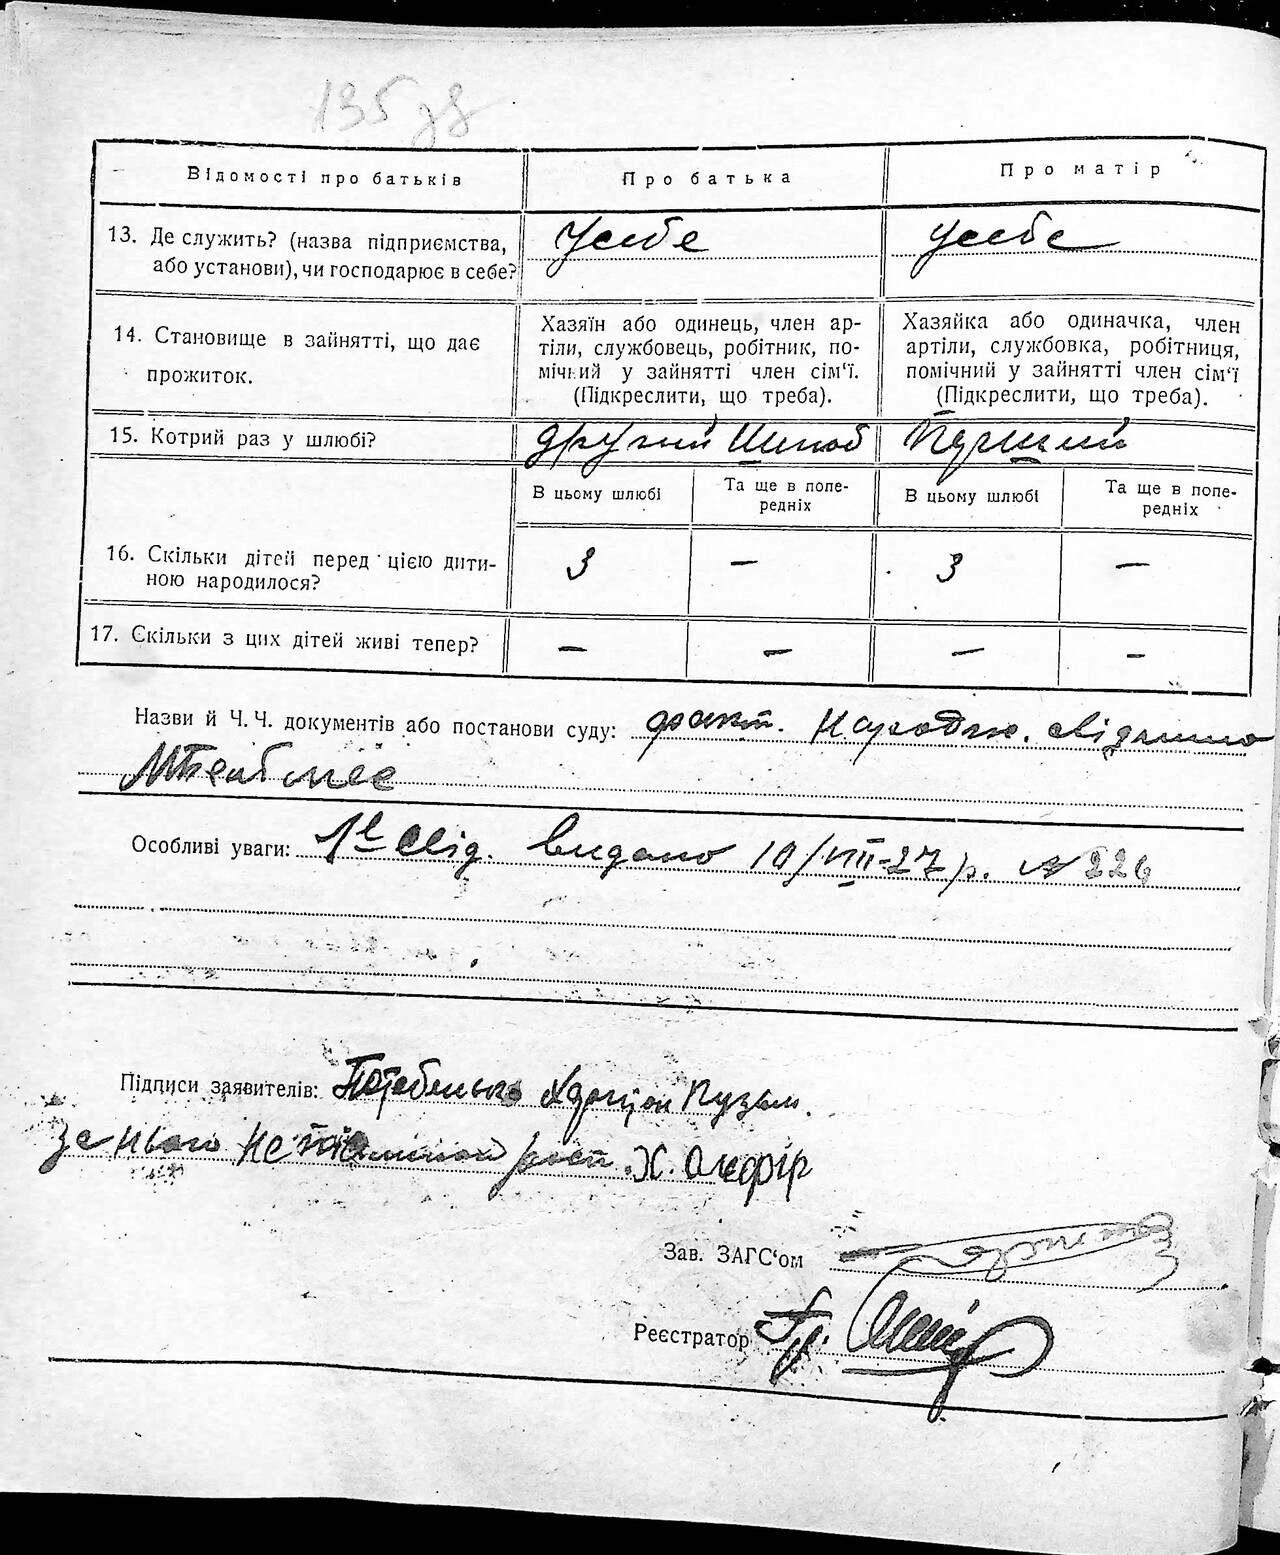 135 зв
Відомості про батьків
Про батька
Про матір
13. Де служить? (назва підприємства, або установи), чи господарює в себе?
У себе
у себе
14. Становище в зайнятті, що дає прожиток.
Хазяїн або одинець, член ар-
тіли, службовець, робітник, по-
мічний у зайнятті член сім'ї.
(Підкреслити, що треба).
Хазяйка або одиначка, член
артіли, службовка, робітниця,
помічний у зайнятті член сім'ї
(Підкреслити, що треба).
15. Котрий раз у шлюбі?
другий шлюб
Перший
В цьому шлюбі
Та ще в попе-
редніх
В цьому шлюбі
Та ще в попе-
редніх
16. Скільки дітей перед цією дити-
ною народилося?
3
—
3
—
17. Скільки з цих дітей живі тепер?
—
—
—
—
Назви й Ч. Ч. документів або постанови суду: факт. Народж.
Особливі уваги: Свід. видано 10/VIII-27 р. № 226
Підписи заявителів: Кузьм.
за нього расп. Х.
Зав. ЗАГС'ом
Реєстратор